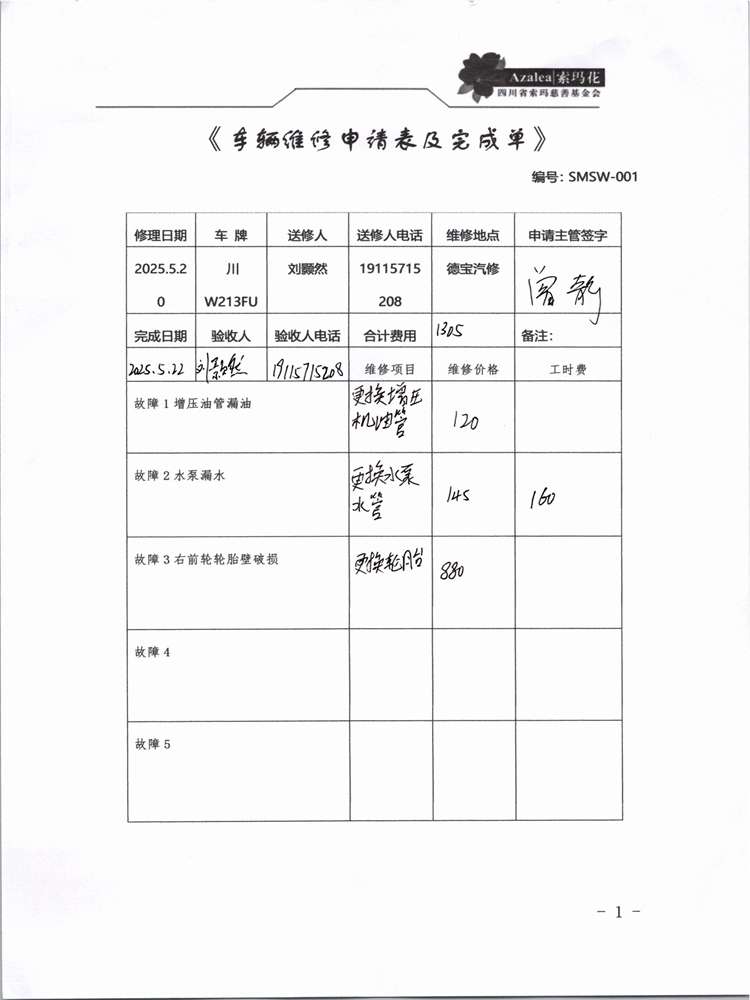 Azalea|索玛花
四川省索玛慈善基金会
《车辆维修申请表及完成单》
编号：SMSW-001
修理日期 车 牌 送修人 送修人电话 维修地点 申请主管签字
2025.5.2 川 刘颢然 19115715 德宝汽修
0 W213FU 208
完成日期 验收人 验收人电话 合计费用 1305 备注：
2025.5.22 19115715208 维修项目 维修价格 工时费
故障 1 增压油管漏油 更换增压
机油管 120
故障 2 水泵漏水 更换水泵
水管 145 160
故障 3 右前轮轮胎壁破损 更换轮胎 880
故障 4
故障 5
- 1 -